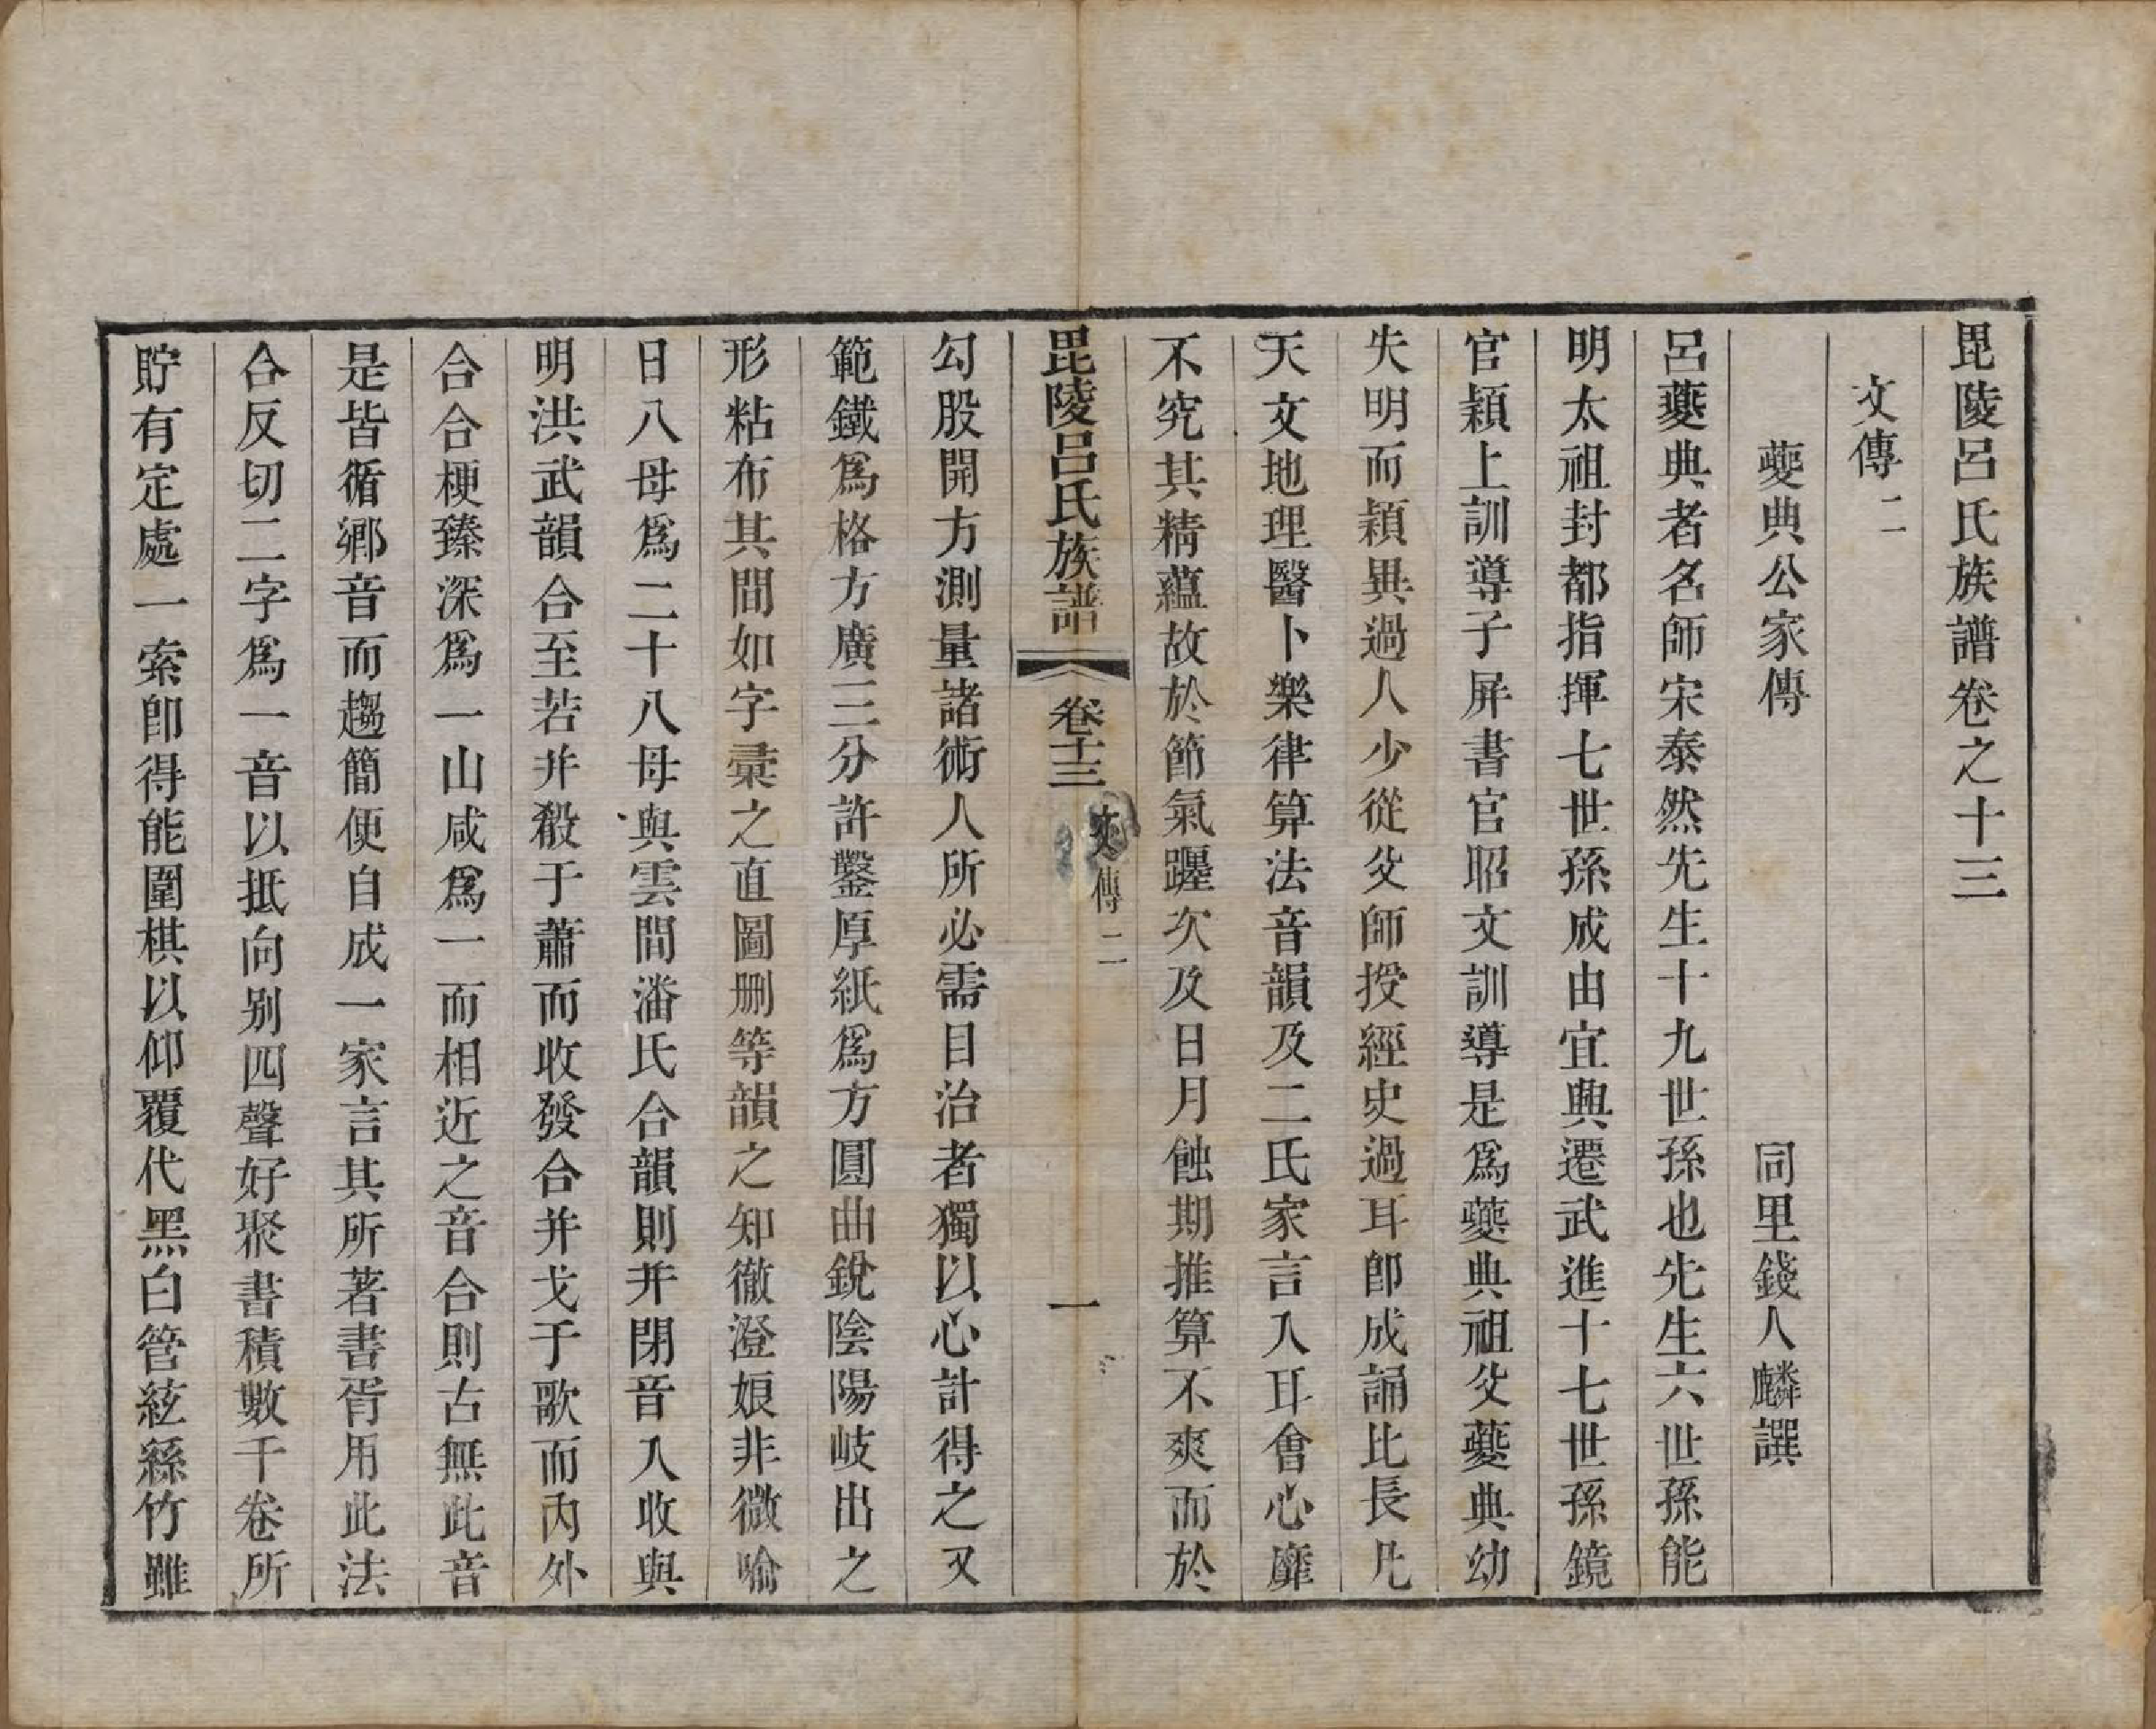 毘陵呂氏族譜卷之十三
文傳二
夔典公家傳 同里錢人麟譔
呂夔典者名師宋泰然先生十九世孫也先生六世孫能
明太祖封都指揮七世孫成由宜興遷武進十七世孫鏡
官潁上訓導子屏書官昭文訓導是爲夔典祖父夔典幼
失明而穎異過人少從父師授經史過耳卽成誦比長凡
天文地理醫卜樂律算法音韻及二氏家言入耳會心靡
不究其精蘊故於節氣躔次及日月蝕期推算不爽而於
毘陵呂氏族譜 卷十三 文傳二 一
勾股開方測量諸術人所必需目治者獨以心計得之又
範鐵爲格方廣三分許鑿厚紙爲方圓曲銳陰陽岐出之
形粘布其間如字彙之直圖删等韻之知徹澄娘非微喻
日八母爲二十八母與雲間潘氏合韻則并閉音入收與
明洪武韻合至若并殺于蕭而收發合并戈于歌而內外
合合梗臻深爲一山咸爲一而相近之音合則古無此音
是皆循鄉音而趨簡便自成一家言其所著書胥用此法
合反切二字爲一音以抵向别四聲好聚書積數千卷所
貯有定處一索卽得能圍棋以仰覆代黑白管絃絲竹雖